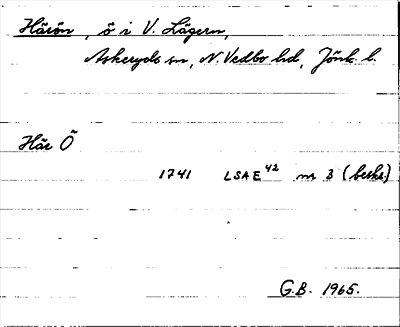 Härön, ö i V. Lägern,
Askeryds sn, N. Vedbo hd, Jönk. l.
Här Ö
1741 LSA E 42 nr 3 (beskr.)
G.B. 1965.